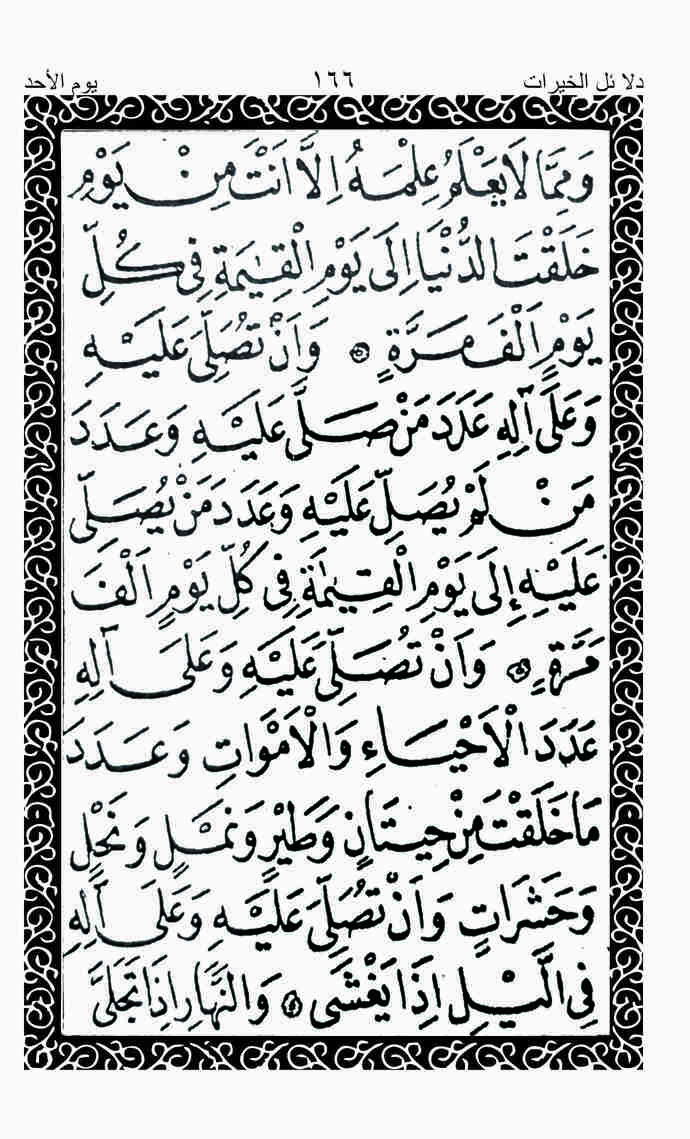 دلائل الخيرات ١٦٦ يوم الأحد
وَمِمَّا لَا يَعْلَمُ عِلْمَهُ اِلَّا اَنْتَ مِنْ يَوْمِ
خَلَقْتَ الدُّنْيَا اِلَى يَوْمِ الْقِيٰمَةِ فِى كُلِّ
يَوْمٍ اَلْفَ مَرَّةٍ ۞ وَاَنْ تُصَلِّىَ عَلَيْهِ
وَعَلَى آلِهِ عَدَدَ مَنْ صَلَّى عَلَيْهِ وَعَدَدَ
مَنْ لَمْ يُصَلِّ عَلَيْهِ وَعَدَدَ مَنْ يُصَلِّى
عَلَيْهِ إِلَى يَوْمِ الْقِيٰمَةِ فِى كُلِّ يَوْمٍ اَلْفَ
مَرَّةٍ ۞ وَاَنْ تُصَلِّىَ عَلَيْهِ وَعَلَى آلِهِ
عَدَدَ الْاَحْيَاءِ وَالْاَمْوَاتِ وَعَدَدَ
مَا خَلَقْتَ مِنْ حِيتَانٍ وَطَيْرٍ وَنَمْلٍ وَنَحْلٍ
وَحَشَرَاتٍ وَاَنْ تُصَلِّىَ عَلَيْهِ وَعَلَى آلِهِ
فِى الَّيْلِ اِذَا يَغْشَى ۞ وَالنَّهَارِ اِذَا تَجَلَّىَ